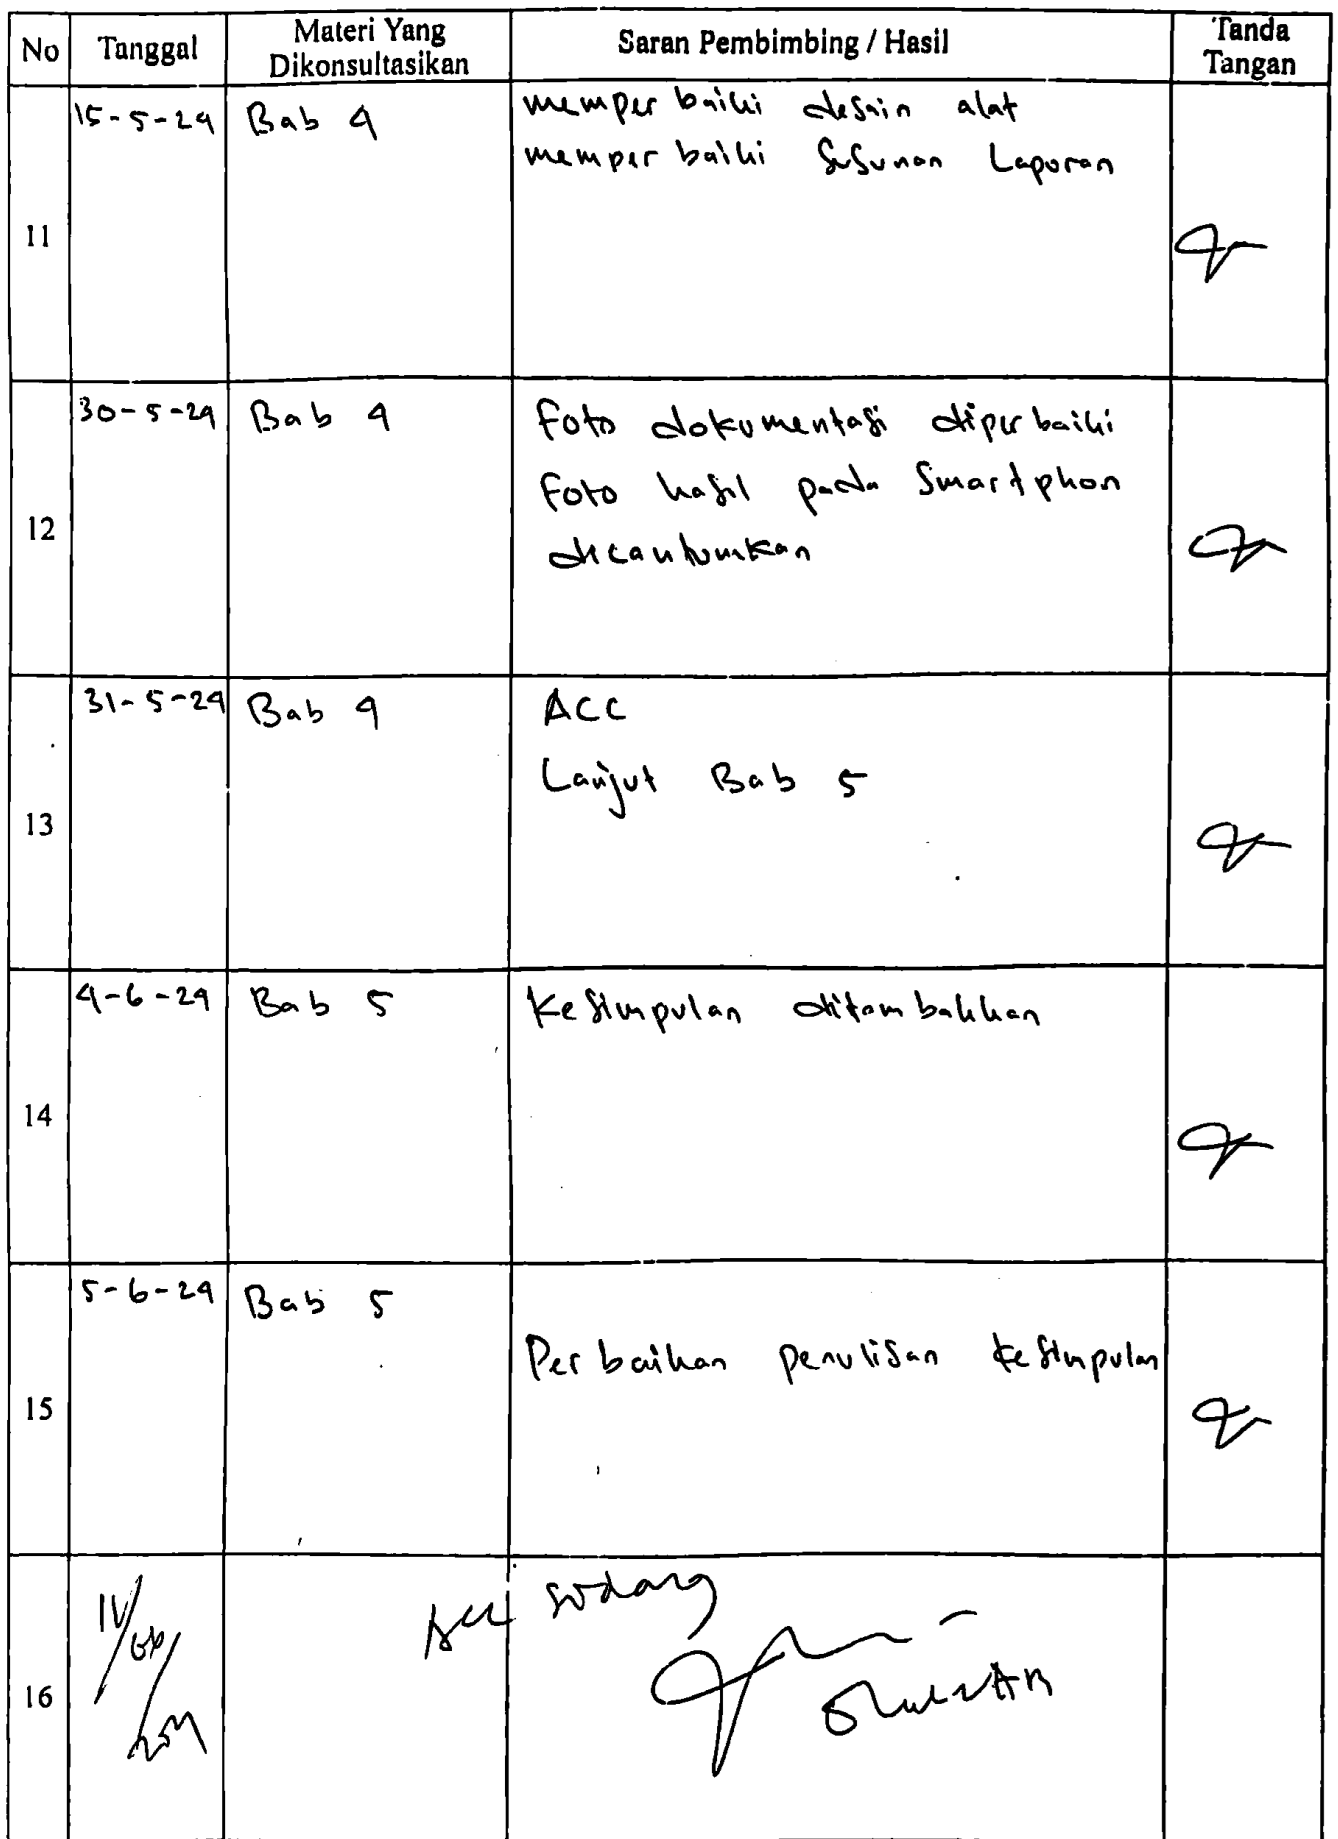 No Tanggal Materi Yang Dikonsultasikan Saran Pembimbing / Hasil Tanda Tangan
11 15-5-24 Bab 4 memperbaiki desain alat
memperbaiki susunan Laporan
12 30-5-24 Bab 4 Foto dokumentasi diperbaiki
Foto hasil pada Smartphon
dicantumkan
13 31-5-24 Bab 4 ACC
Lanjut Bab 5
14 4-6-24 Bab 5 Kesimpulan ditambahkan
15 5-6-24 Bab 5
Perbaikan penulisan kesimpulan
16 Acc sidang